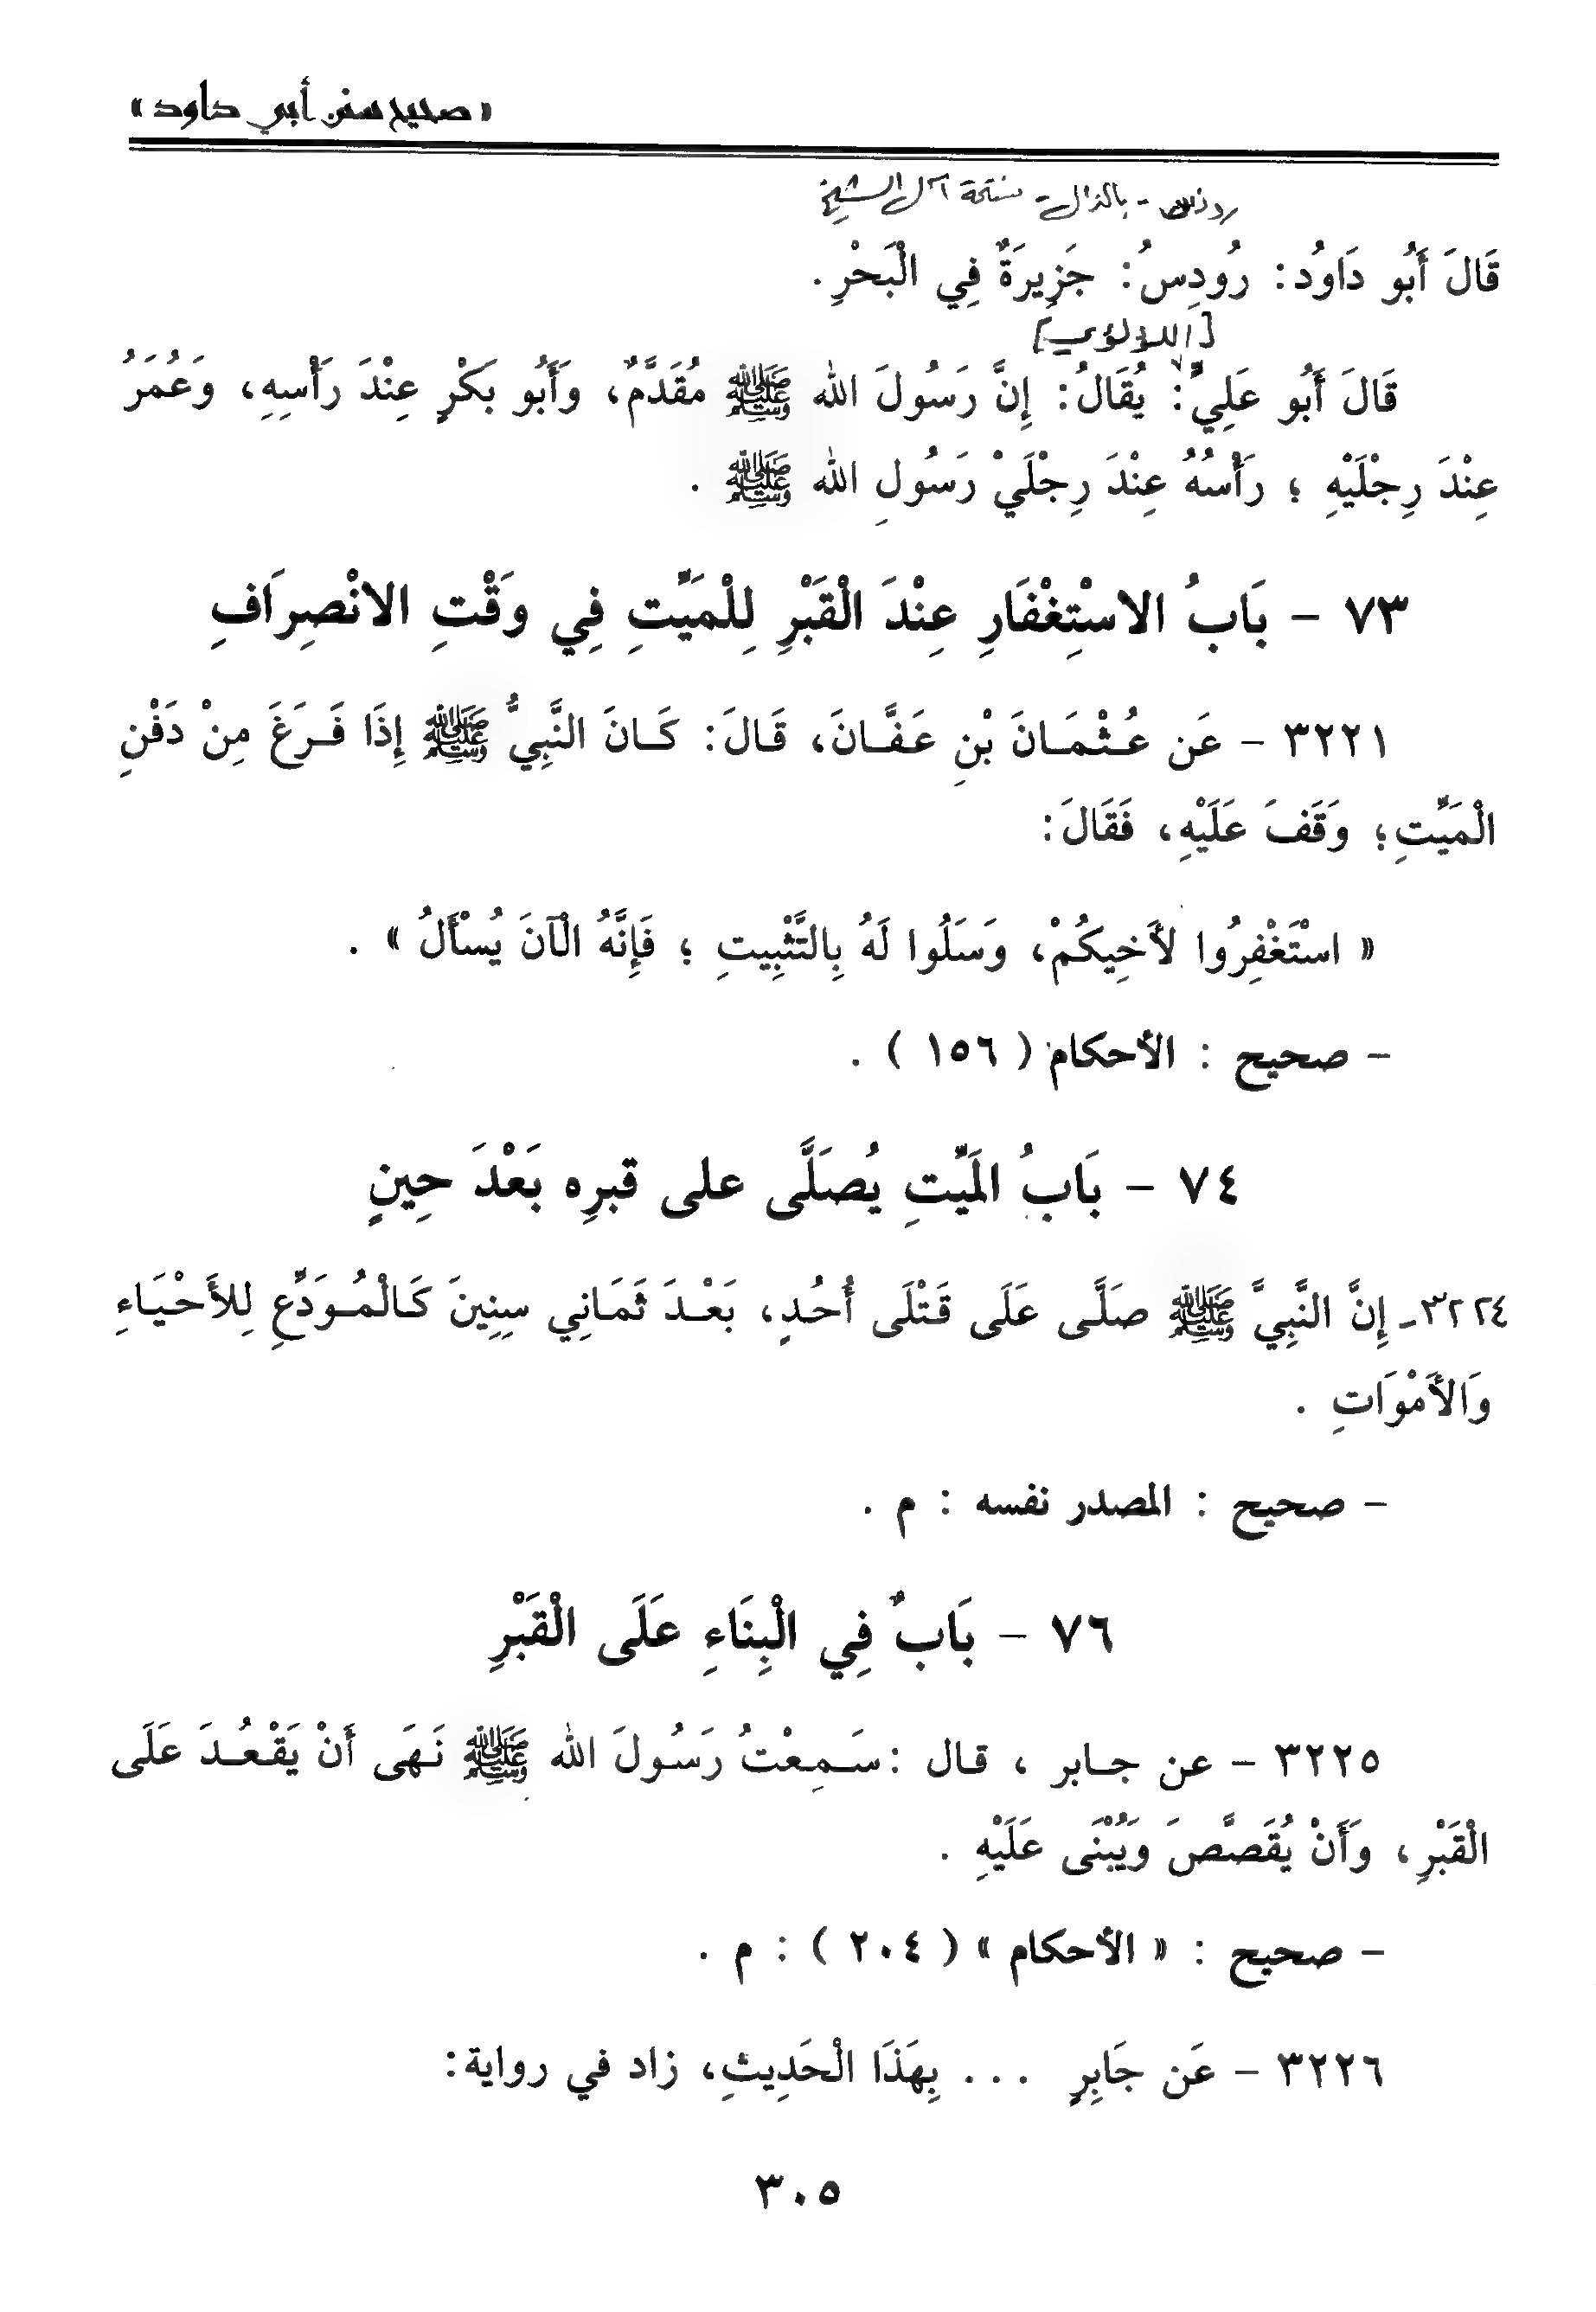 « صحيح سنن أبي داود »
روذس - بالذال - نسخة آل الشيخ
قَالَ أَبُو دَاوُد: رُودِسُ: جَزِيرَةٌ فِي الْبَحْرِ .
[اللؤلؤي]
قَالَ أَبُو عَلِيٍّ: يُقَالُ: إِنَّ رَسُولَ الله ﷺ مُقَدَّمٌ، وَأَبُو بَكْرٍ عِنْدَ رَأْسِهِ، وَعُمَرُ
عِنْدَ رِجْلَيْهِ ؛ رَأْسُهُ عِنْدَ رِجْلَيْ رَسُولِ الله ﷺ .
٧٣ - بَابُ الاسْتِغْفَارِ عِنْدَ الْقَبْرِ لِلْمَيِّتِ فِي وَقْتِ الانْصِرَافِ
٣٢٢١ - عَن عُثْمَانَ بْنِ عَفَّانَ، قَالَ: كَانَ النَّبِيُّ ﷺ إِذَا فَرَغَ مِنْ دَفْنِ
الْمَيِّتِ؛ وَقَفَ عَلَيْهِ، فَقَالَ:
« اسْتَغْفِرُوا لأَخِيكُمْ، وَسَلُوا لَهُ بِالتَّثْبِيتِ ؛ فَإِنَّهُ الْآنَ يُسْأَلُ » .
- صحيح : الأحكام ( ١٥٦ ) .
٧٤ - بَابُ المَيِّتِ يُصَلَّى على قبرِه بَعْدَ حِينٍ
٣٢٢٤- إِنَّ النَّبِيَّ ﷺ صَلَّى عَلَى قَتْلَى أُحُدٍ، بَعْدَ ثَمَانِي سِنِينَ كَالْمُوَدِّعِ لِلأَحْيَاءِ
وَالأَمْوَاتِ .
- صحيح : المصدر نفسه : م .
٧٦ - بَابٌ فِي الْبِنَاءِ عَلَى الْقَبْرِ
٣٢٢٥ - عن جابر ، قال :سَمِعْتُ رَسُولَ الله ﷺ نَهَى أَنْ يَقْعُدَ عَلَى
الْقَبْرِ، وَأَنْ يُقَصَّصَ وَيُبْنَى عَلَيْهِ .
- صحيح : « الأحكام » ( ٢٠٤ ) : م .
٣٢٢٦ - عَن جَابِرٍ . . . بِهَذَا الْحَدِيثِ، زاد في رواية:
٣٠٥